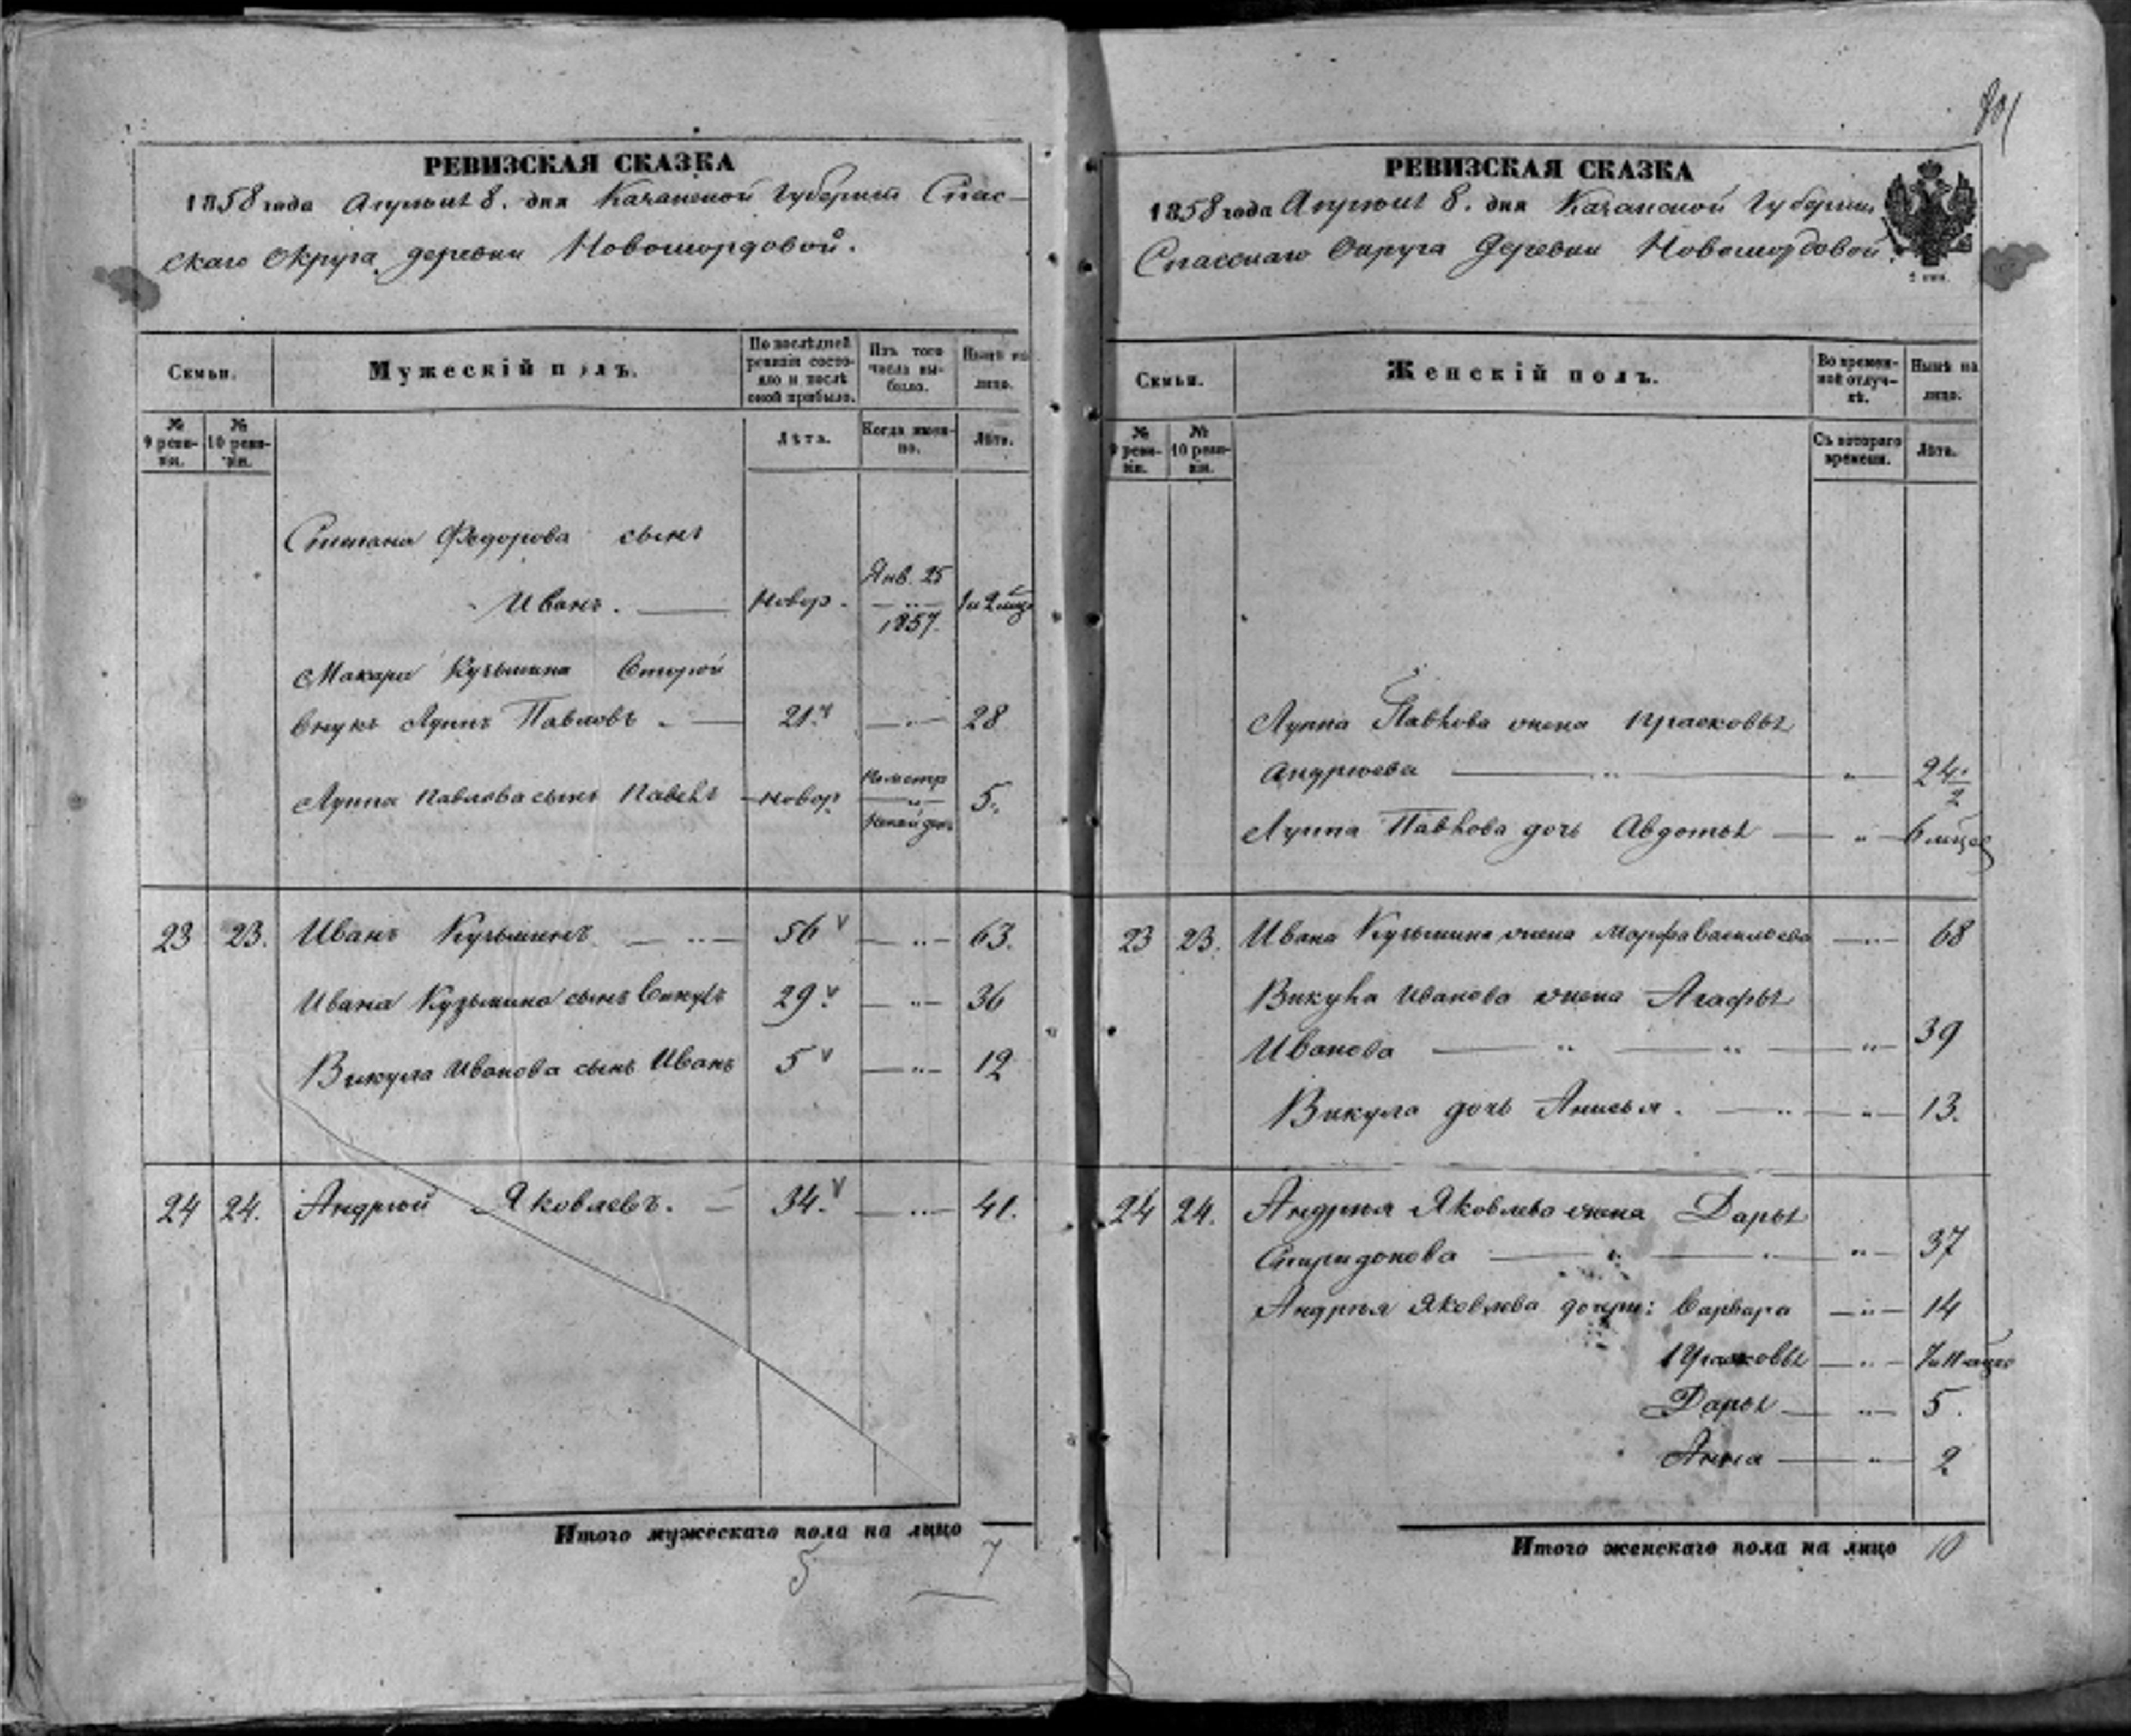 РЕВИЗСКАЯ СКАЗКА
1858 года Апреля 8. дня Казанской Губернии Спас-
скаго Округа деревни Новомордовой.
Семьи.
Мужескій полъ.
По послѣдней ревизіи состояло и послѣ оной прибыло.
Изъ того числа выбыло.
Нынѣ на лицо.
№ 9 ревизіи.
№ 10 ревизіи.
Лѣта.
Когда именно.
Лѣта.
Степана Федорова сынъ
Янв. 25
Иванъ. новор. 1 и 2 мѣц
1857.
Макара Кузьмина второй
внукъ Луппъ Павловъ. 21. 28
Луппа Павлова сынъ Павелъ новор 5.
23 23. Иванъ Кузьминъ 56 63.
Ивана Кузьмина сынъ Викулъ 29. 36
Викула Иванова сынъ Иванъ 5 12
24 24. Андрей Яковлевъ. 34. 41.
Итого мужескаго пола на лицо 7
5
801
РЕВИЗСКАЯ СКАЗКА
1858 года Апреля 8. дня Казанской Губернии
Спасскаго Округа Деревни Новомордовой.
Семьи.
Женскій полъ.
Во временной отлучкѣ.
Нынѣ на лицо.
№ 9 ревизіи.
№ 10 ревизіи.
Съ котораго времени.
Лѣта.
Луппа Павлова жена Прасковья
Андреева 24 1/2
Луппа Павлова дочь Авдотья 6 мѣцев
23 23. Ивана Кузьмина жена Марфа Васильева 68
Викула Иванова жена Агафья
Иванова 39
Викула дочь Анисья. 13.
24 24. Андрея Яковлева жена Дарья
Спиридонова 37
Андрея Яковлева дочери: Варвара 14
Прасковья 7 и 11 мѣцев
Дарья 5.
Анна 2
Итого женскаго пола на лицо 10